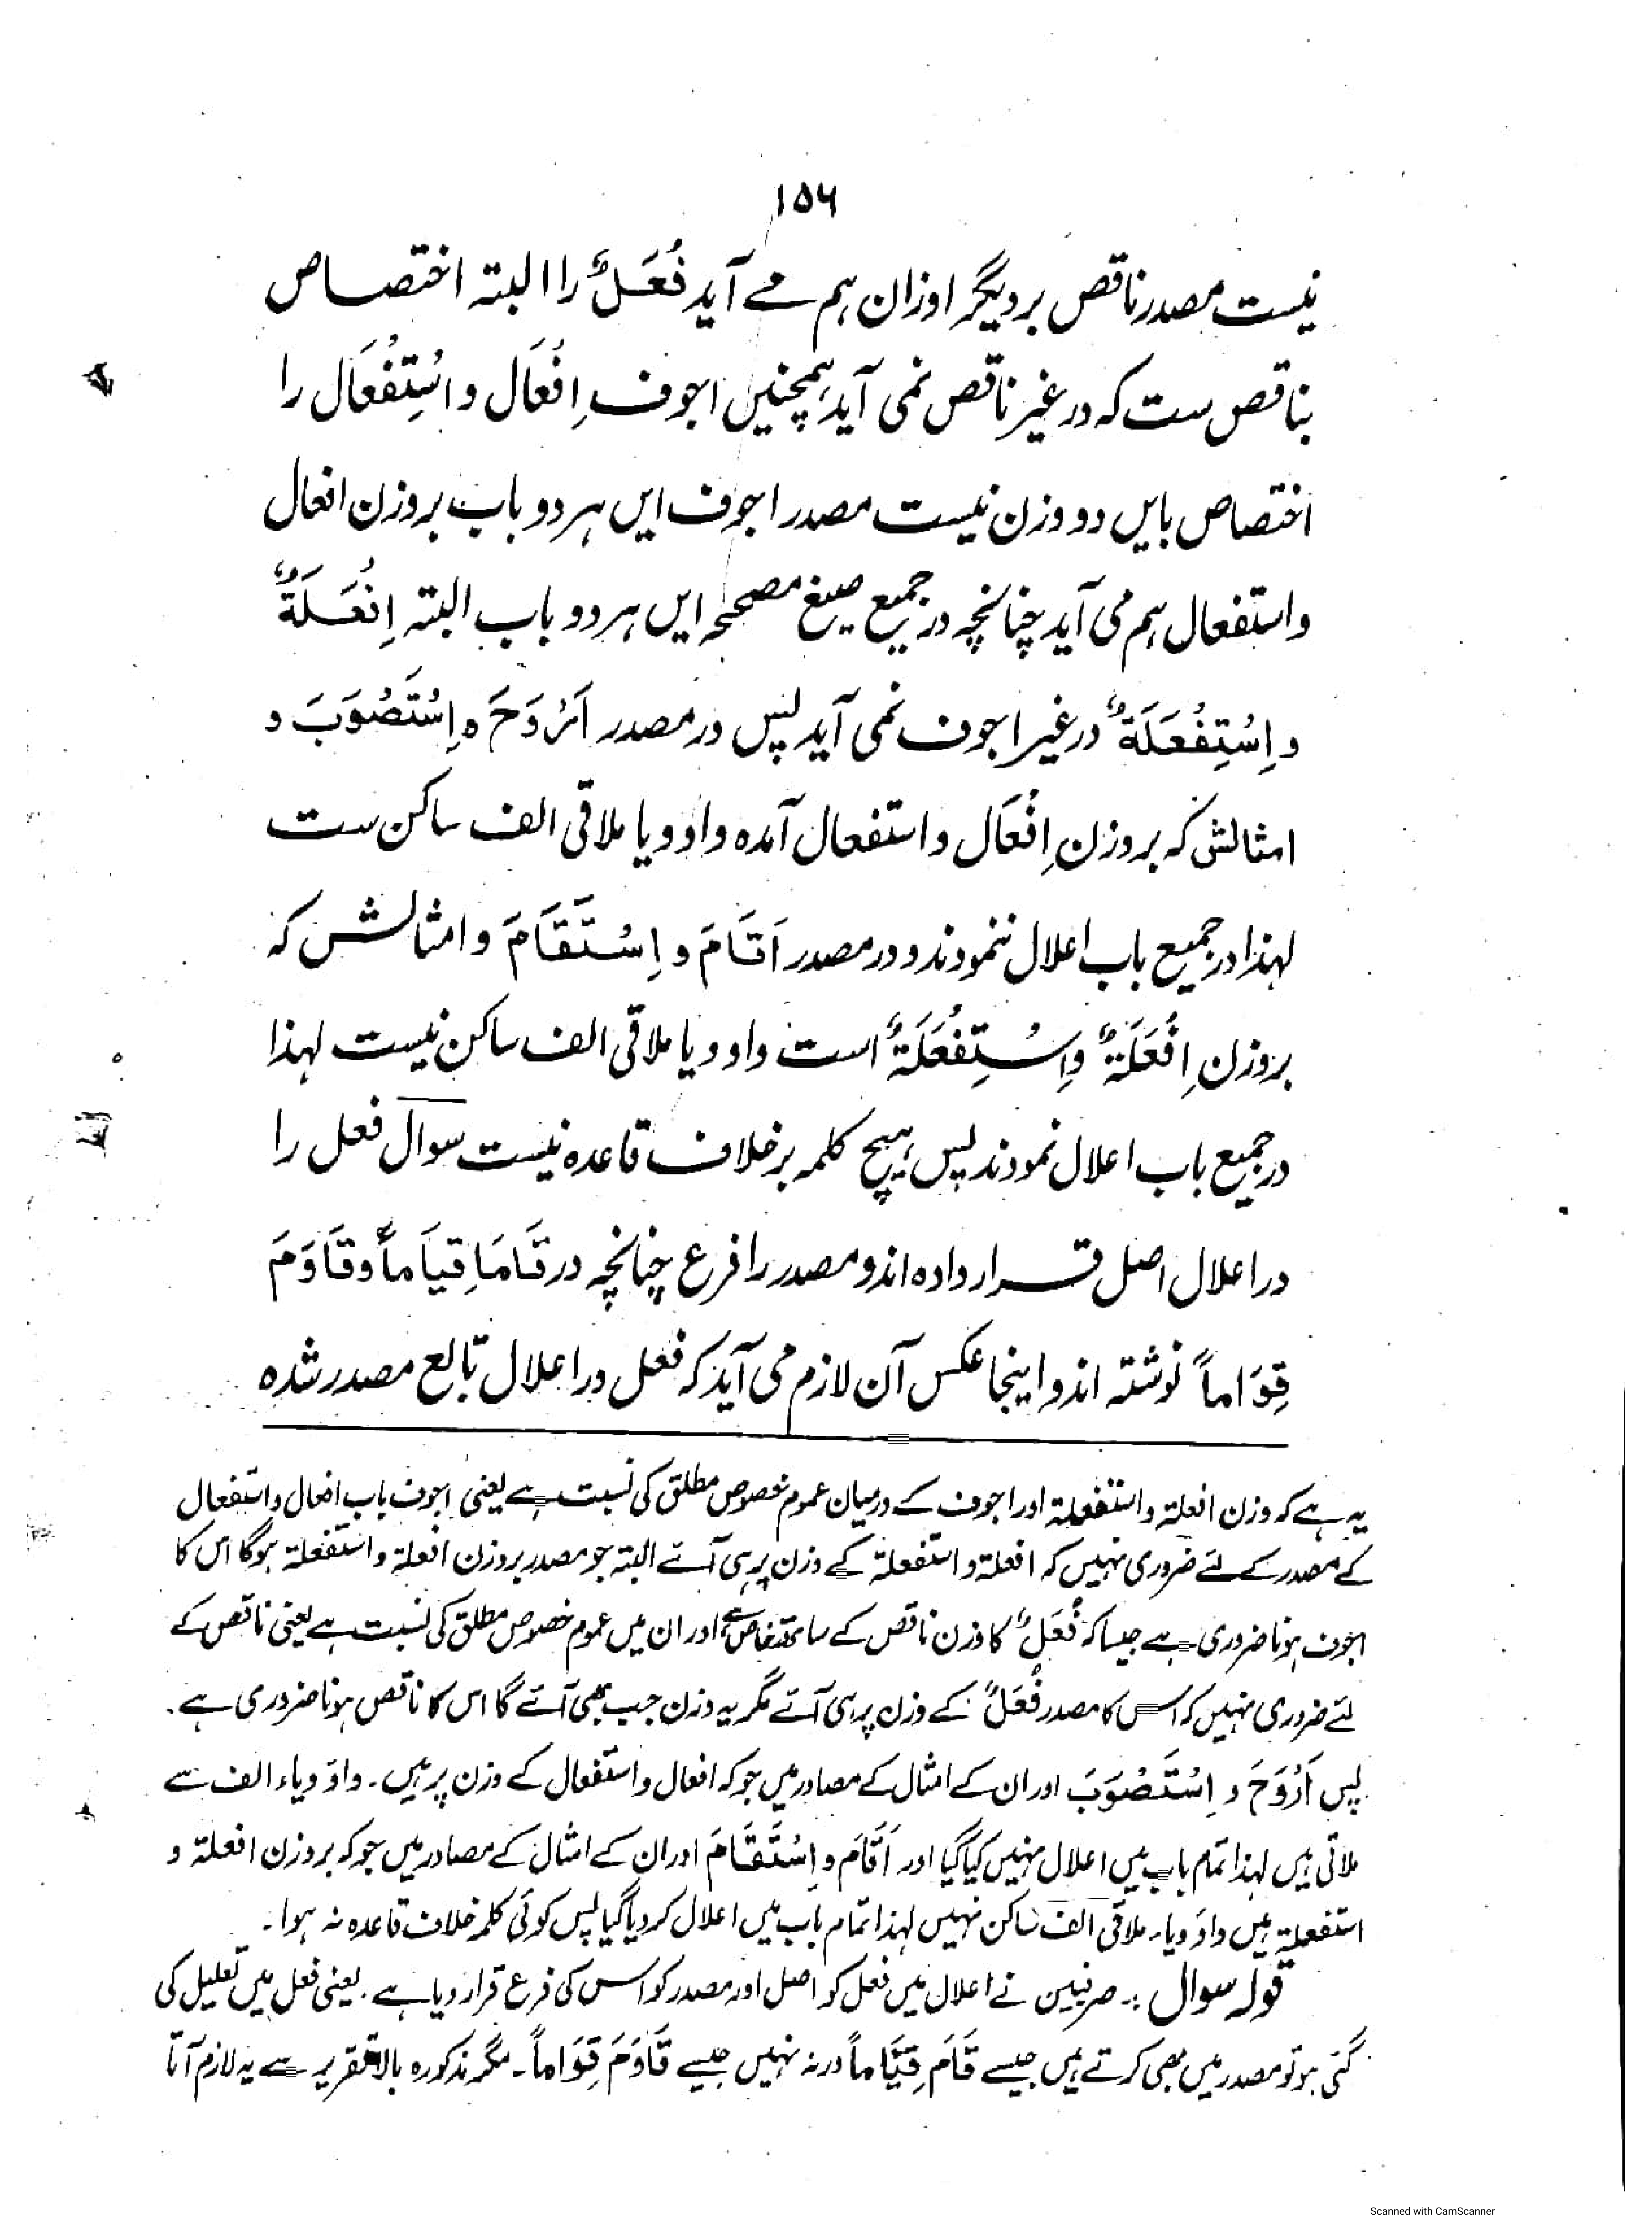 ۱۵۶
نیست مصدر ناقص بر دیگر اوزان ہم مے آید فُعَلٌ را البتہ اختصاص
بناقص ست کہ در غیر ناقص نمی آید ہمچنیں اجوف اِفْعَال و اسْتِفْعَال را
اختصاص بایں دو وزن نیست مصدر اجوف ایں ہر دو باب بروزن افعال
و استفعال ہم می آید چنانچہ در جمیع صیغ مصححہ ایں ہر دو باب البتہ اِفْعَلَةٌ
و اِسْتِفْعَلَةٌ در غیر اجوف نمی آید پس در مصدر اَرْوَحَ و اِسْتَصْوَبَ و
امثالش کہ بروزن اِفْعَال و استفعال آمدہ واو و یا ملاقی الف ساکن ست
لہذا در جمیع باب اعلال ننمودند و در مصدر اَقَامَ و اِسْتَقَامَ و امثالش کہ
بروزن اِفْعَلَةٌ وِاسْتِفْعَلَةٌ است واو و یا ملاقی الف ساکن نیست لہذا
در جمیع باب اعلال نمودند پس ہیچ کلمہ بر خلاف قاعدہ نیست سوال فعل را
در اعلال اصل قرار دادہ اند و مصدر را فرع چنانچہ در قَامَ قِیَاماً وقَاوَمَ
قِوَاماً نوشتہ اند و اینجا عکس آن لازم می آید کہ فعل در اعلال تابع مصدر شدہ
یہ ہے کہ وزن افعلۃ و استفعلۃ اور اجوف کے درمیان عموم خصوص مطلق کی نسبت ہے یعنی اجوف باب افعال و استفعال
کے مصدر کے لئے ضروری نہیں کہ افعلۃ و استفعلۃ کے وزن پر ہی آئے البتہ جو مصدر بروزن افعلۃ و استفعلۃ ہوگا اس کا
اجوف ہونا ضروری ہے جیسا کہ فُعَلٌ کا وزن ناقص کے ساتھ خاص ہے اور ان میں عموم خصوص مطلق کی نسبت ہے یعنی ناقص کے
لئے ضروری نہیں کہ اس کا مصدر فُعَلٌ کے وزن پر ہی آئے مگر یہ وزن جب بھی آئے گا اس کا ناقص ہونا ضروری ہے۔
پس اَرْوَحَ و اِسْتَصْوَبَ اور ان کے امثال کے مصادر میں جو کہ افعال و استفعال کے وزن پر ہیں۔ واؤ ویاء الف سے
ملاقی ہیں لہذا تمام باب میں اعلال نہیں کیا گیا اور اَقَامَ و اِسْتَقَامَ اور ان کے امثال کے مصادر میں جو کہ بروزن افعلۃ و
استفعلۃ ہیں واؤ ویاء ملاقی الف ساکن نہیں لہذا تمام باب میں اعلال کر دیا گیا پس کوئی کلمہ خلاف قاعدہ نہ ہوا۔
قولہ سوال :۔ صرفیین نے اعلال میں فعل کو اصل اور مصدر کو اس کی فرع قرار دیا ہے۔ یعنی فعل میں تعلیل کی
گئی ہو تو مصدر میں بھی کرتے ہیں جیسے قَامَ قِیَاماً ورنہ نہیں جیسے قَاوَمَ قِوَاماً۔ مگر مذکورہ بالا تقریر سے یہ لازم آتا
Scanned with CamScanner